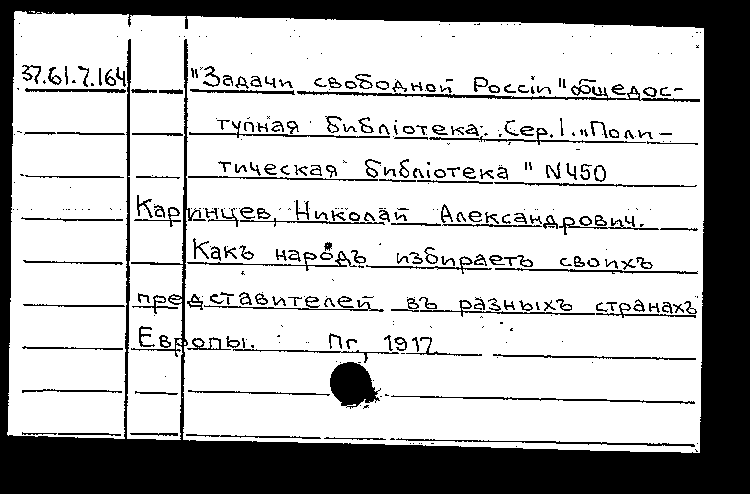 37.61.7.164 "Задачи свободной Россіи" общедос-
тупная библіотека. Сер.1. „Поли-
тическая библіотека" N450
Каринцев, Николай Александрович.
Какъ народъ избираетъ своихъ
представителей въ разныхъ странахъ
Европы. Пг., 1917